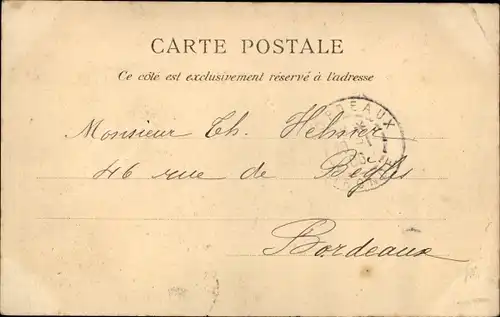 CARTE POSTALE
Ce côté est exclusivement réservé à l'adresse
BORDEAUX
Monsieur Th. Hehner
46 rue de Bègles
Bordeaux